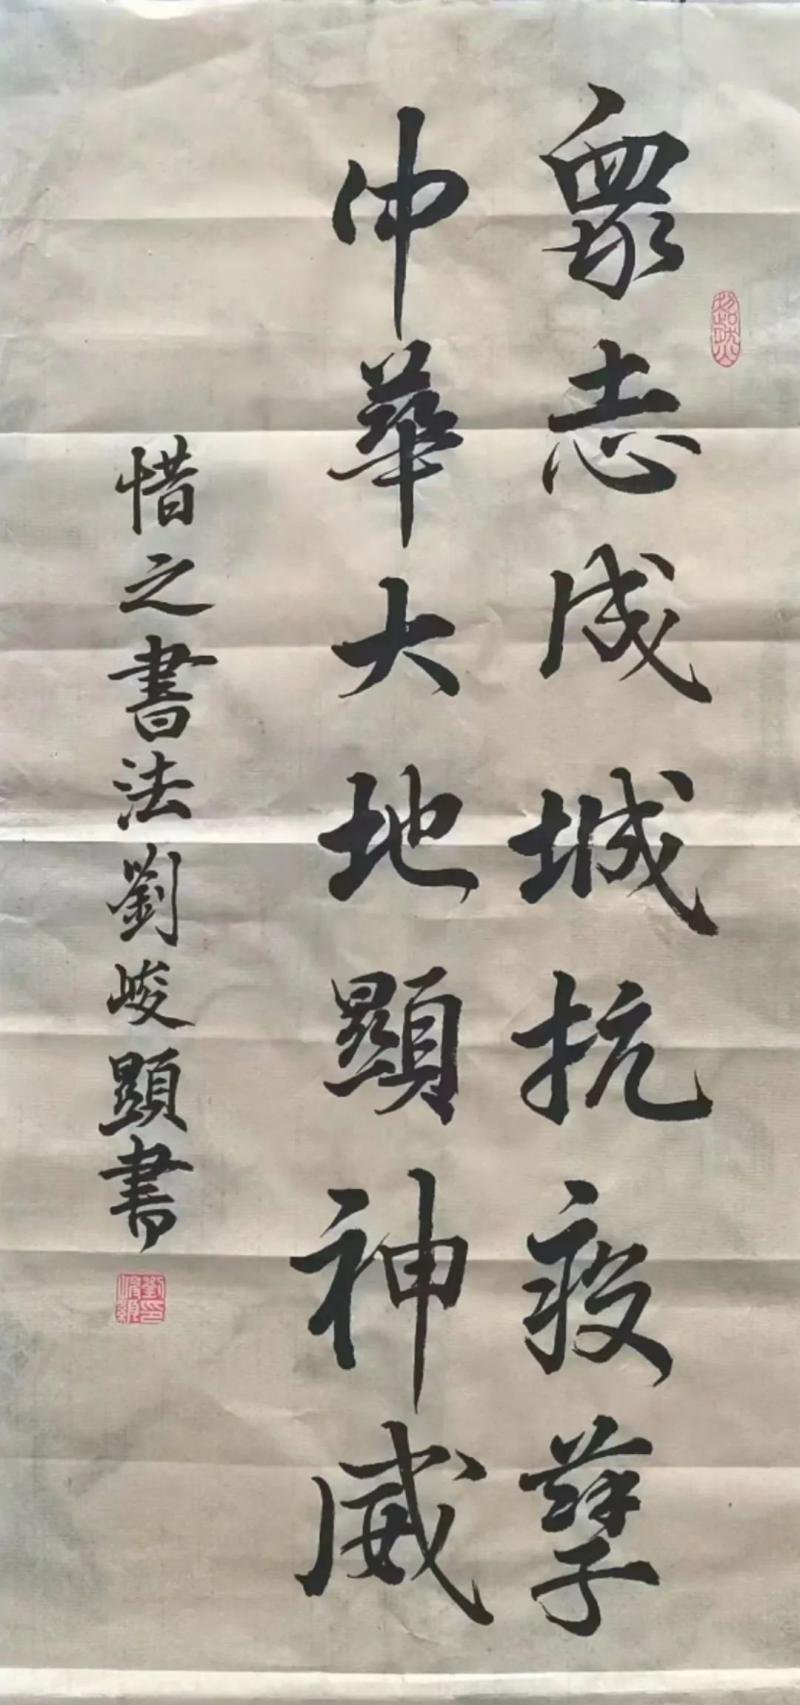 眾志成城抗疫孽
中華大地顯神威
惜之書法劉峻顯書